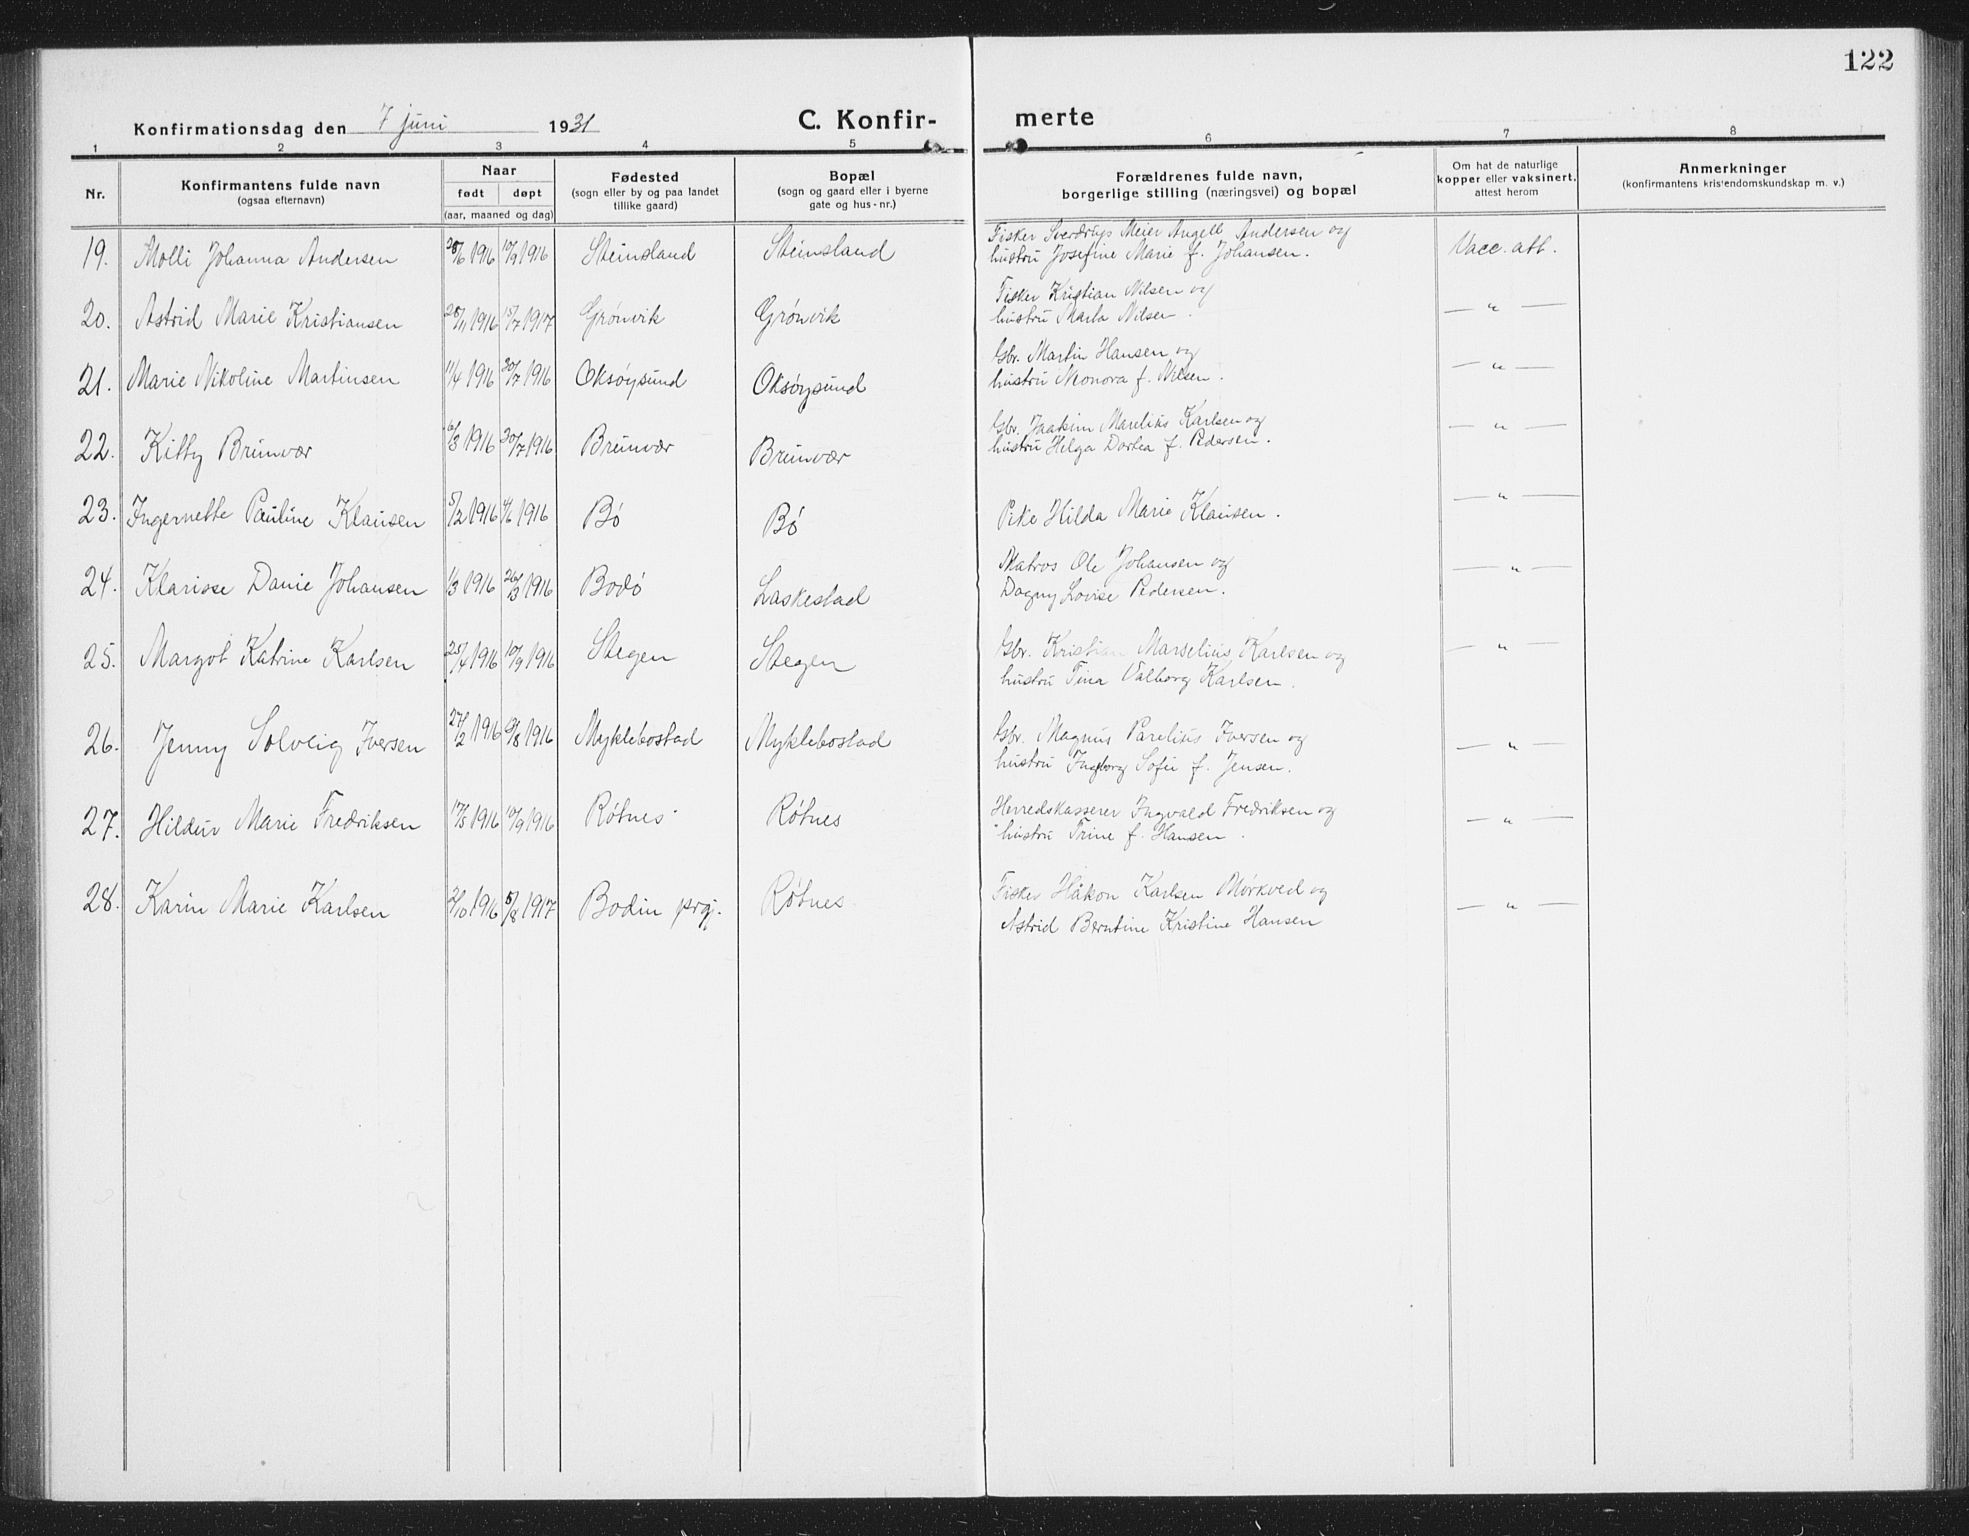 122
Konfirmationsdag den 7 juni 1931
C. Konfir-
merte
1 2 3 4 5 6 7 8
Nr.
Konfirmantens fulde navn
(ogsaa efternavn)
Naar
født døpt
(aar, maaned og dag)
Fødested
(sogn eller by og paa landet
tillike gaard)
Bopæl
(sogn og gaard eller i byerne
gate og hus-nr.)
Forældrenes fulde navn,
borgerlige stilling (næringsvei) og bopæl
Om hat de naturlige
kopper eller vaksinert,
attest herom
Anmerkninger
(konfirmantens kristendomskundskap m. v.)
19. Molli Johanna Andersen 1916 10/9 1916 Steinsland Steinsland
Fisker Sverdrup Meier Angell Andersen og
hustru Josefine Marie f. Johansen.
Vacc. att.
20. Astrid Marie Kristiansen 1916 15/7 1917 Grønvik Grønvik
Fisker Kristian Nilsen og
hustru Marta Nilsen.
— " —
21. Marie Nikoline Martinsen 11/4 1916 30/7 1916 Oksøysund Oksøysund
Gbr. Martin Hansen og
hustru f. Nilsen.
— " —
22. Kitty Brunvær 1916 30/7 1916 Brunvær Brunvær
Gbr. Joakim Marelius Karlsen og
hustru Helga Dortea f. Pedersen.
— " —
23. Ingernette Pauline Klausen 5/2 1916 4/6 1916 Bø Bø
Pike Hilda Marie Klausen.
— " —
24. Klarisse Danie Johansen 1/3 1916 26/3 1916 Bodø Laskestad
Matros Ole Johansen og
Dagny Lovise Pedersen.
— " —
25. Margot Katrine Karlsen 25/4 1916 10/9 1916 Stegen Stegen
Gbr. Kristian Marselius Karlsen og
hustru Tina Valborg Karlsen.
— " —
26. Jenny Solveig Iversen 27/2 1916 1916 Myklebostad Myklebostad
Gbr. Magnus Parelius Iversen og
hustru Ingeborg Sofie f. Jensen.
— " —
27. Hildur Marie Fredriksen 17/5 1916 10/9 1916 Røtnes Røtnes
Herredskasserer Ingvald Fredriksen og
hustru Trine f. Hansen.
— " —
28. Karin Marie Karlsen 1916 1917 Bodin prgj. Røtnes
Fisker Håkon Karlsen Mørkved og
Astrid Berntine Kristine Hansen
— " —